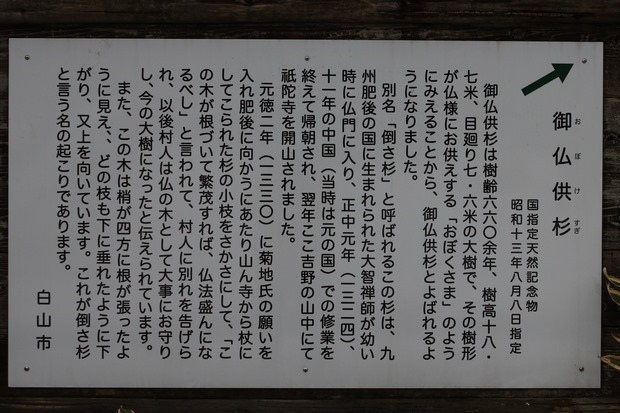 御仏供杉
おぼけすぎ
国指定天然記念物
昭和十三年八月八日指定
御仏供杉は樹齢六六〇余年、樹高十八・
七米、目廻り七・六米の大樹で、その樹形
が仏様にお供えする「おぼくさま」のよう
にみえることから、御仏供杉とよばれるよ
うになりました。
別名「倒さ杉」と呼ばれるこの杉は、九
州肥後の国に生まれられた大智禅師が幼い
時に仏門に入り、正中元年（一三二四）、
十一年の中国（当時は元の国）での修業を
終えて帰朝され、翌年ここ吉野の山中にて
祇陀寺を開山されました。
元徳二年（一三三〇）に菊地氏の願いを
入れ肥後に向かうにあたり山ん寺から杖に
してこられた杉の小枝をさかさにして、「こ
の木が根づいて繁茂すれば、仏法盛んにな
るべし」と言われて、村人に別れを告げら
れ、以後村人は仏の木として大事にお守り
し、今の大樹になったと伝えられています。
また、この木は梢が四方に根が張ったよ
うに見え、、どの枝も下に垂れたように下
がり、又上を向いています。これが倒さ杉
と言う名の起こりであります。
白山市